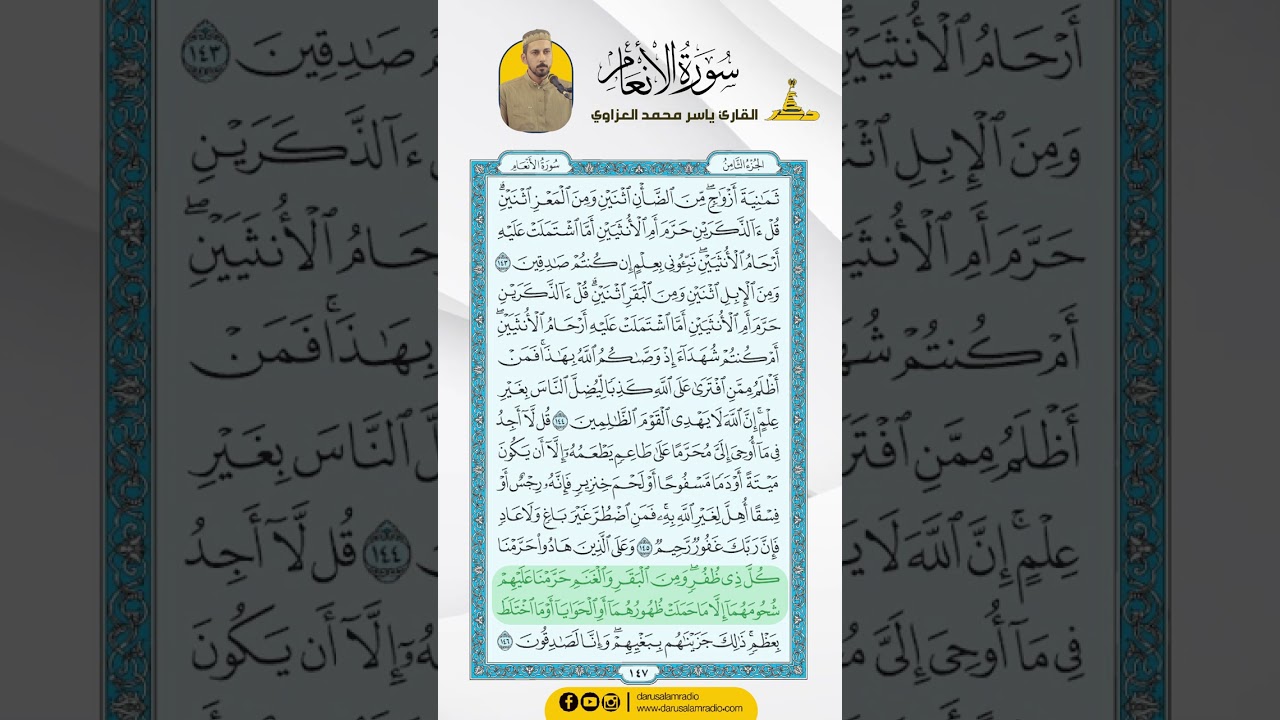 سُورَةُ الْأَنْعَام
القارئ ياسر محمد العزاوي
الجُزْءُ الثَّامِنُ
سُورَةُ الأَنْعَامِ
ثَمَٰنِيَةَ أَزْوَٰجٖۖ مِّنَ ٱلضَّأْنِ ٱثْنَيْنِ وَمِنَ ٱلْمَعْزِ ٱثْنَيْنِۗ
قُلْ ءَآلذَّكَرَيْنِ حَرَّمَ أَمِ ٱلْأُنثَيَيْنِ أَمَّا ٱشْتَمَلَتْ عَلَيْهِ
أَرْحَامُ ٱلْأُنثَيَيْنِۖ نَبِّـُٔونِى بِعِلْمٍ إِن كُنتُمْ صَٰدِقِينَ ١٤٣
وَمِنَ ٱلْإِبِلِ ٱثْنَيْنِ وَمِنَ ٱلْبَقَرِ ٱثْنَيْنِۗ قُلْ ءَآلذَّكَرَيْنِ
حَرَّمَ أَمِ ٱلْأُنثَيَيْنِ أَمَّا ٱشْتَمَلَتْ عَلَيْهِ أَرْحَامُ ٱلْأُنثَيَيْنِۖ
أَمْ كُنتُمْ شُهَدَآءَ إِذْ وَصَّىٰكُمُ ٱللَّهُ بِهَٰذَاۚ فَمَنْ
أَظْلَمُ مِمَّنِ ٱفْتَرَىٰ عَلَى ٱللَّهِ كَذِبٗا لِّيُضِلَّ ٱلنَّاسَ بِغَيْرِ
عِلْمٍۚ إِنَّ ٱللَّهَ لَا يَهْدِى ٱلْقَوْمَ ٱلظَّٰلِمِينَ ١٤٤ قُل لَّآ أَجِدُ
فِى مَآ أُوحِىَ إِلَىَّ مُحَرَّمًا عَلَىٰ طَاعِمٖ يَطْعَمُهُۥٓ إِلَّآ أَن يَكُونَ
مَيْتَةً أَوْ دَمٗا مَّسْفُوحًا أَوْ لَحْمَ خِنزِيرٖ فَإِنَّهُۥ رِجْسٌ أَوْ
فِسْقًا أُهِلَّ لِغَيْرِ ٱللَّهِ بِهِۦۚ فَمَنِ ٱضْطُرَّ غَيْرَ بَاغٖ وَلَا عَادٖ
فَإِنَّ رَبَّكَ غَفُورٞ رَّحِيمٞ ١٤٥ وَعَلَى ٱلَّذِينَ هَادُوا۟ حَرَّمْنَا
كُلَّ ذِى ظُفُرٖۖ وَمِنَ ٱلْبَقَرِ وَٱلْغَنَمِ حَرَّمْنَا عَلَيْهِمْ
شُحُومَهُمَآ إِلَّا مَا حَمَلَتْ ظُهُورُهُمَآ أَوِ ٱلْحَوَايَآ أَوْ مَا ٱخْتَلَطَ
بِعَظْمٖۚ ذَٰلِكَ جَزَيْنَٰهُم بِبَغْيِهِمْۖ وَإِنَّا لَصَٰدِقُونَ ١٤٦
١٤٧
darusalamradio
www.darusalamradio.com